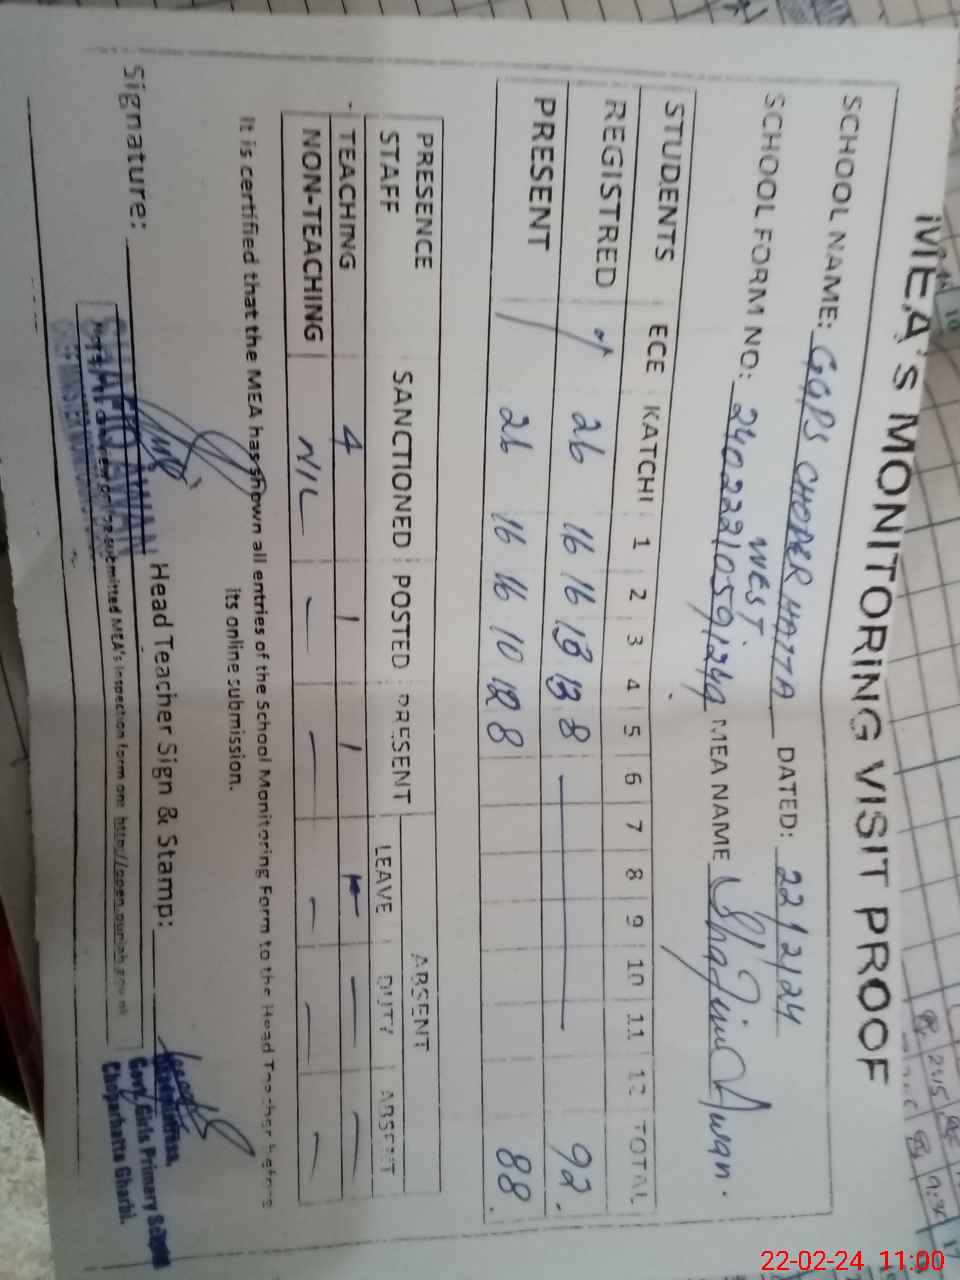 MEA'S MONITORING VISIT PROOF
SCHOOL NAME: GGPS CHOPER HATTA DATED: 22/2/24
WEST.
SCHOOL FORM NO: MEA NAME Awan.
STUDENTS ECE KATCHI 1 2 3 4 5 6 7 8 9 10 11 12 TOTAL
REGISTRED 26 16 16 13 13 8 — 92.
PRESENT / 26 16 16 10 12 8 88.
PRESENCE ABSENT
STAFF SANCTIONED POSTED PRESENT LEAVE DUTY ABSENT
TEACHING 4 1 1 — — —
NON-TEACHING NIL — — — — —
It is certified that the MEA has shown all entries of the School Monitoring Form to the Head Teacher before
its online submission.
Signature: Head Teacher Sign & Stamp:
Headmistress,
Govt. Girls Primary School
Choparhatta Gharbi.
submitted MEA's inspection form on: http://open.punjab.gov.pk
22-02-24 11:00